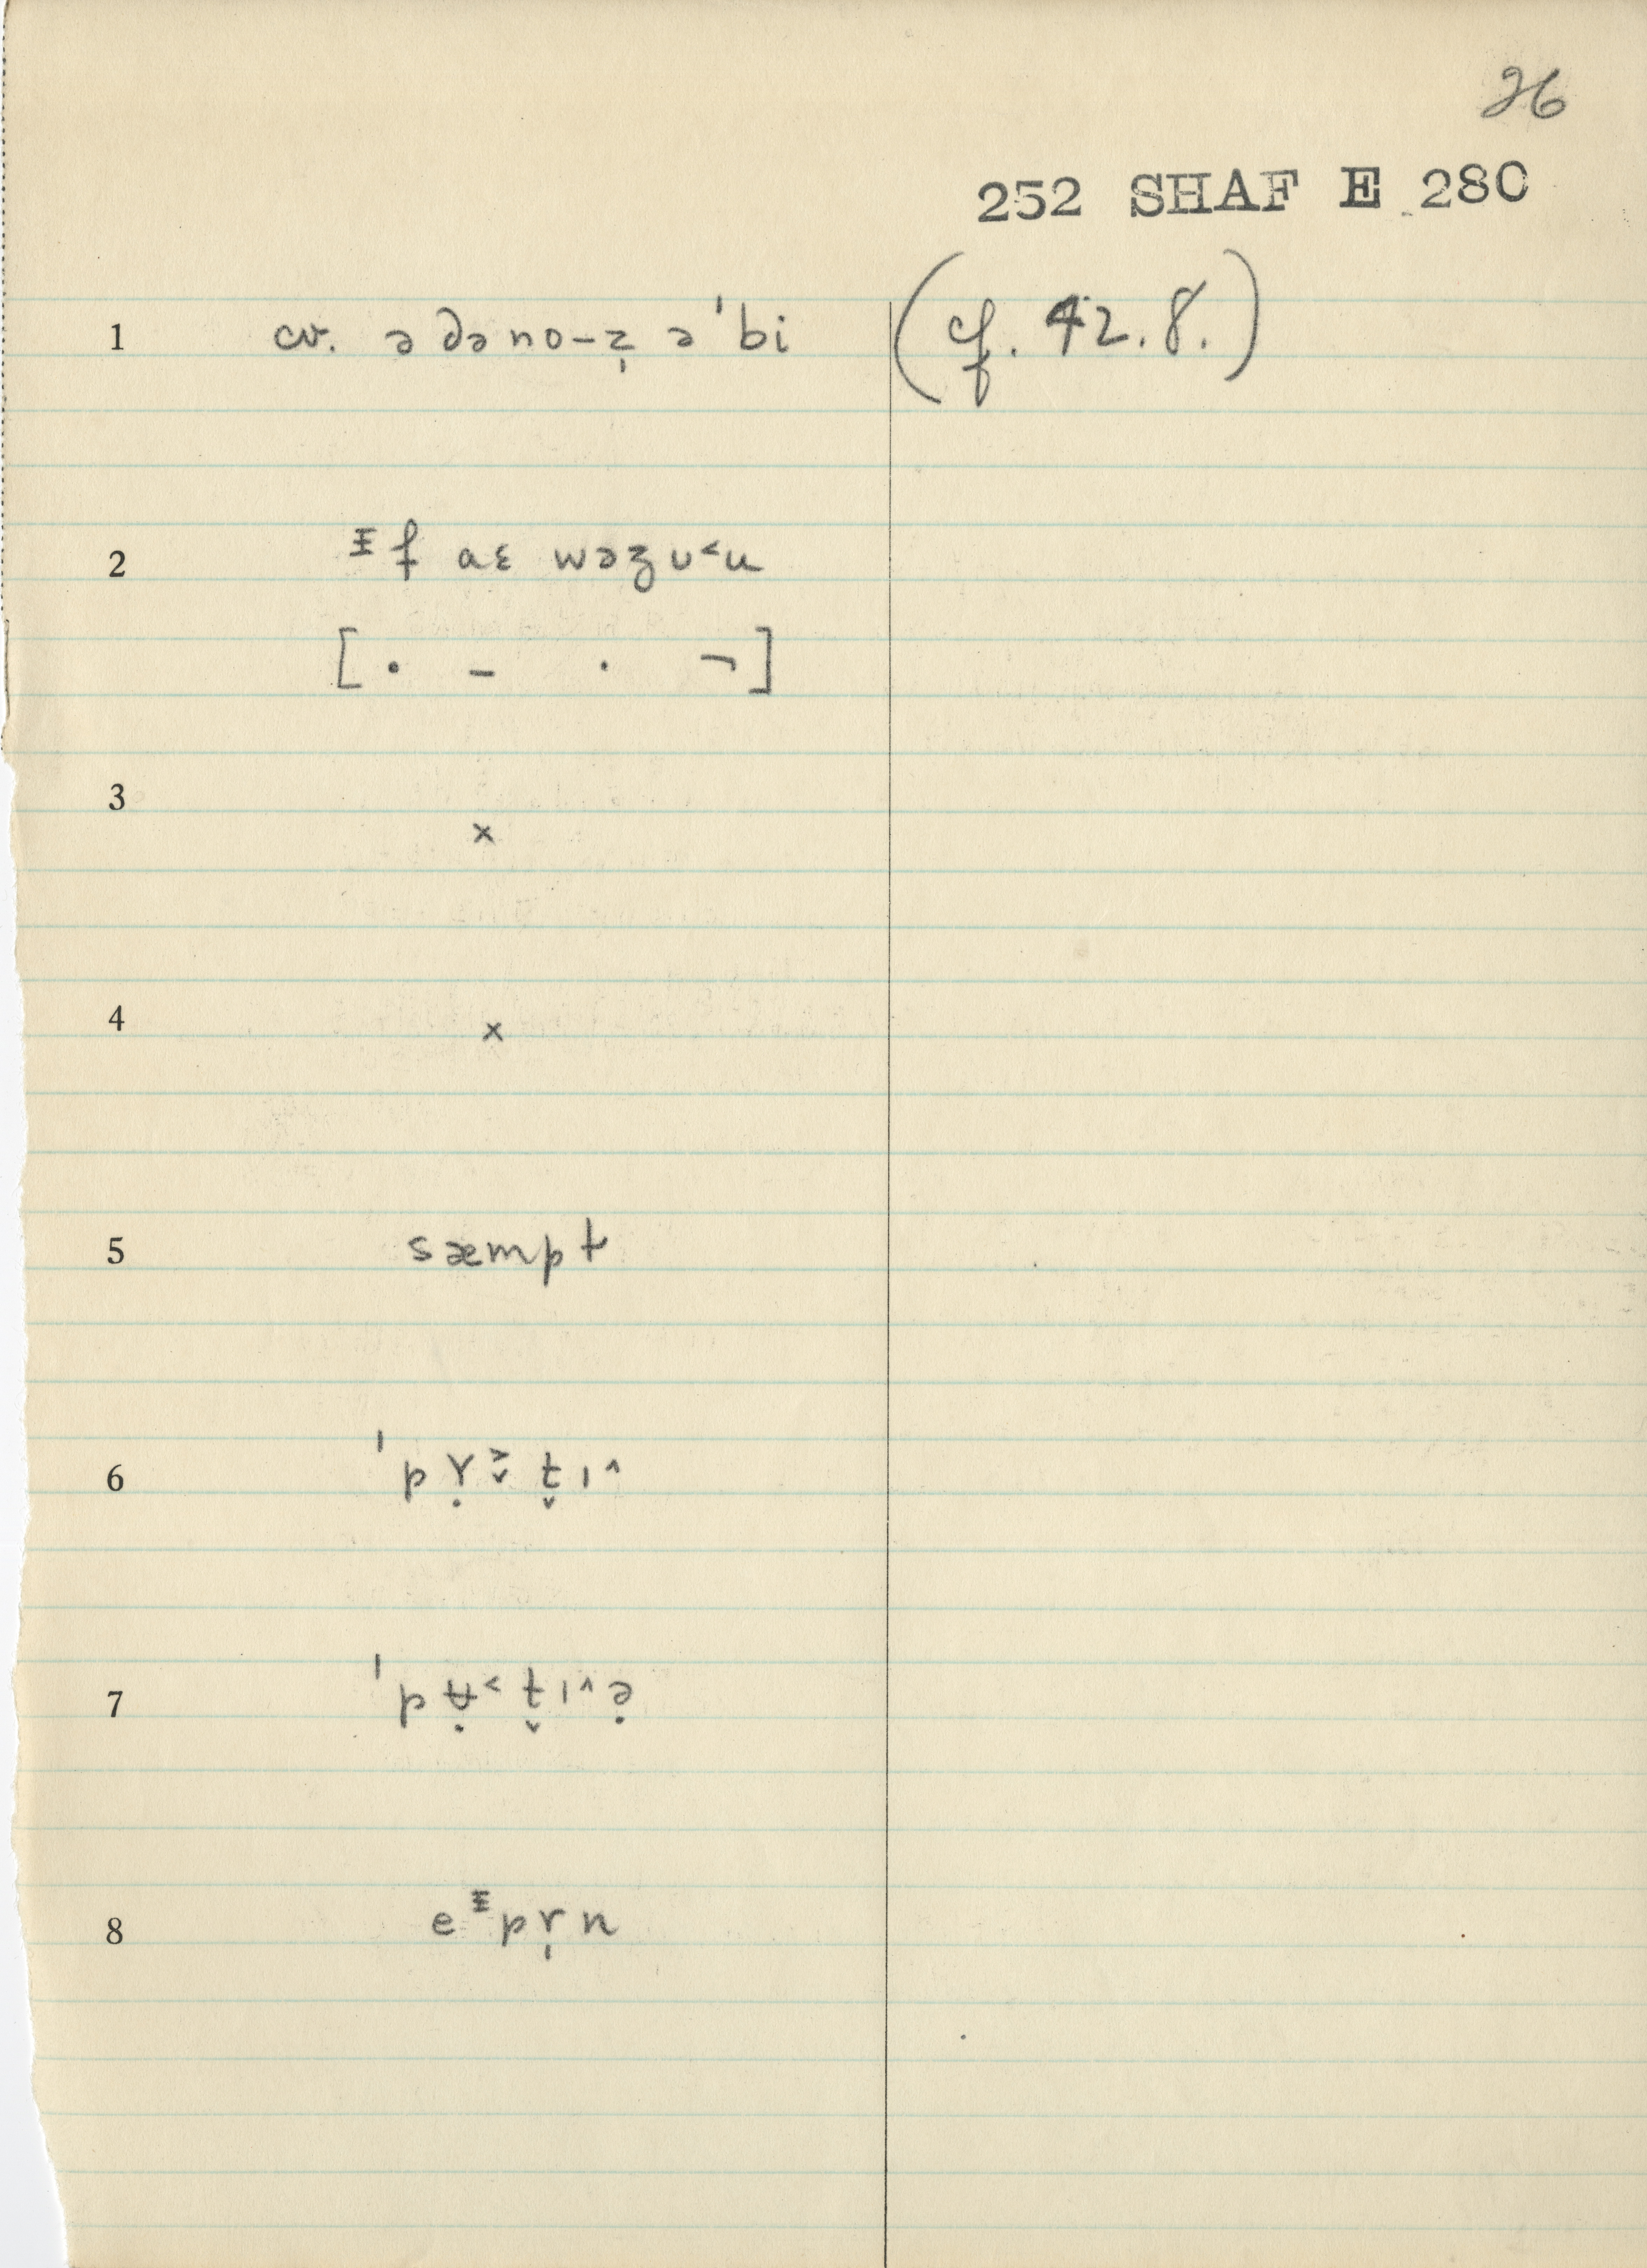 26
252 SHAF E 280
1 cv. ə də no–z̩ ə ˈbi (cf. 42.8.)
2 ᵻf aɛ wəʒ ʊ˂u
[· – · ¬]
3 ×
4 ×
5 sæmpt
6 ˈp ɣ̣ t̬ ɪ˄
7 ˈp ʉ̣˂ t̬ ɪ˄ ə̣
8 eᵻpr̩n